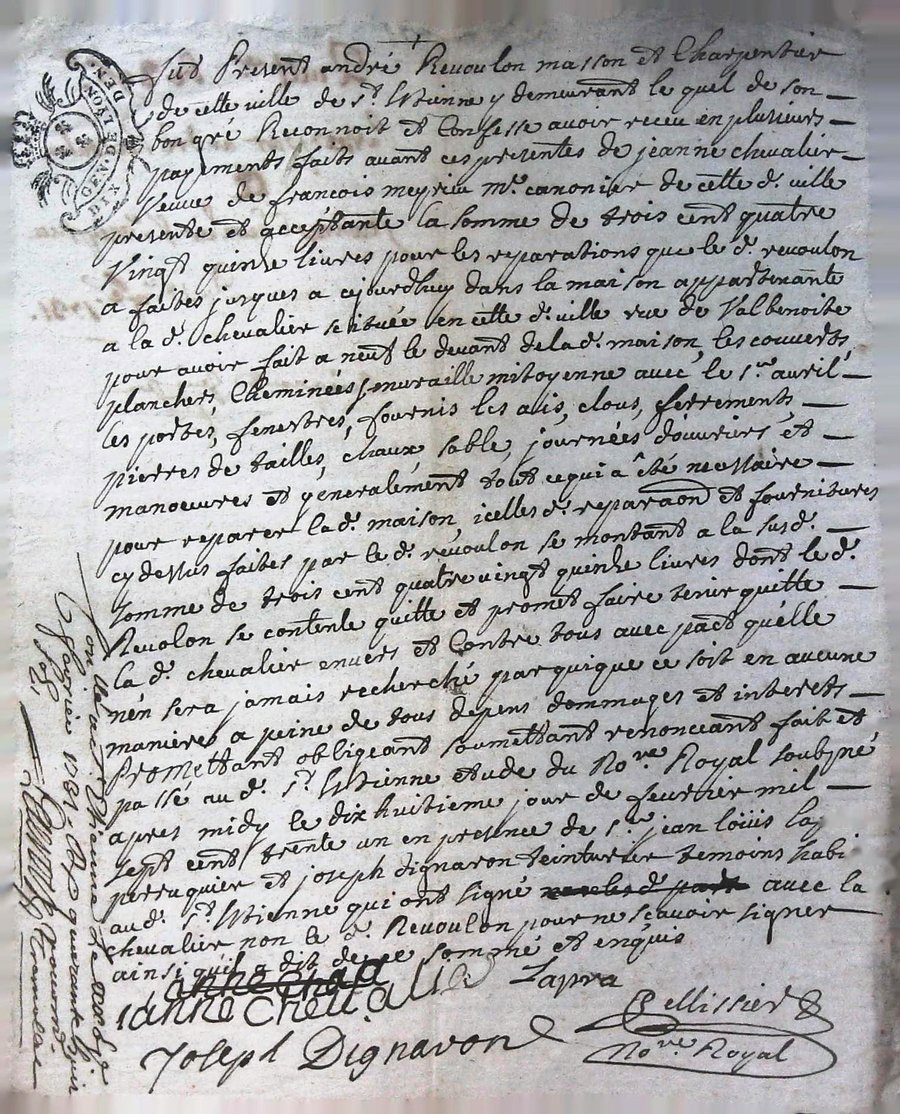 GEN. DE LION. DIX DEN.
fut Present andré Revoulon masson et Charpentier
de cette ville de st. Etienne y demeurant le quel de son
bon gré Reconnoit et Confesse avoir receu en plusieurs
payements faits avant ces presentes de jeanne chevalier
Veuve de francois meyrieu me. canonier de cette d. ville
presente et acceptante la somme de trois cent quatre
Vingt quinze livres pour les reparations que le d. revoulon
a faites jusques a cejourdhuy dans la maison appartenante
a la d. chevalier scituée en cette d. ville rue de Valbenoite
pour avoir fait a neuf le devant de la d. maison, les couverts
planchers, Cheminées, muraille mitoyenne avec le sr. avril
les portes, fenestres, fournis les ais, clous, ferrements
pierres de tailles, chaux, sable, journées douvriers et
manoeuvres et generalement tout ce qui a été necessaire
pour reparer la d. maison, icelles d. reparaon et fournitures
cy dessus faites par le d. revoulon se montant a la sus d.
somme de trois cent quatre vingt quinze livres dont le d.
Revolon se contente quitte et promet faire tenir quitte
la d. chevalier envers et Contre tous avec pact quélle
nén sera jamais recherché par quique ce soit en aucune
manieres a peine de tous depens dommages et interets
Promettant obligeant soumettant renonceant fait et
passé au d. st. Etienne etude du Nore Royal soubzné
apres midy le dix huitieme jour de feuvrier mil
sept cent trente un en presence de sr. jean loüis lap
perruquier et joseph dignaron teinturier temoins habi
au d. st. Etienne qui ont signé avec la
chevalier non le d. Revoulon pour ne scavoir signer
ainsi quil a dit de ce sommé et enquis
ianne Chevallie
Lapra
Joseph Dignaron
Bellissier
Nore Royal
Con
Etienne le
1731
quarante huit